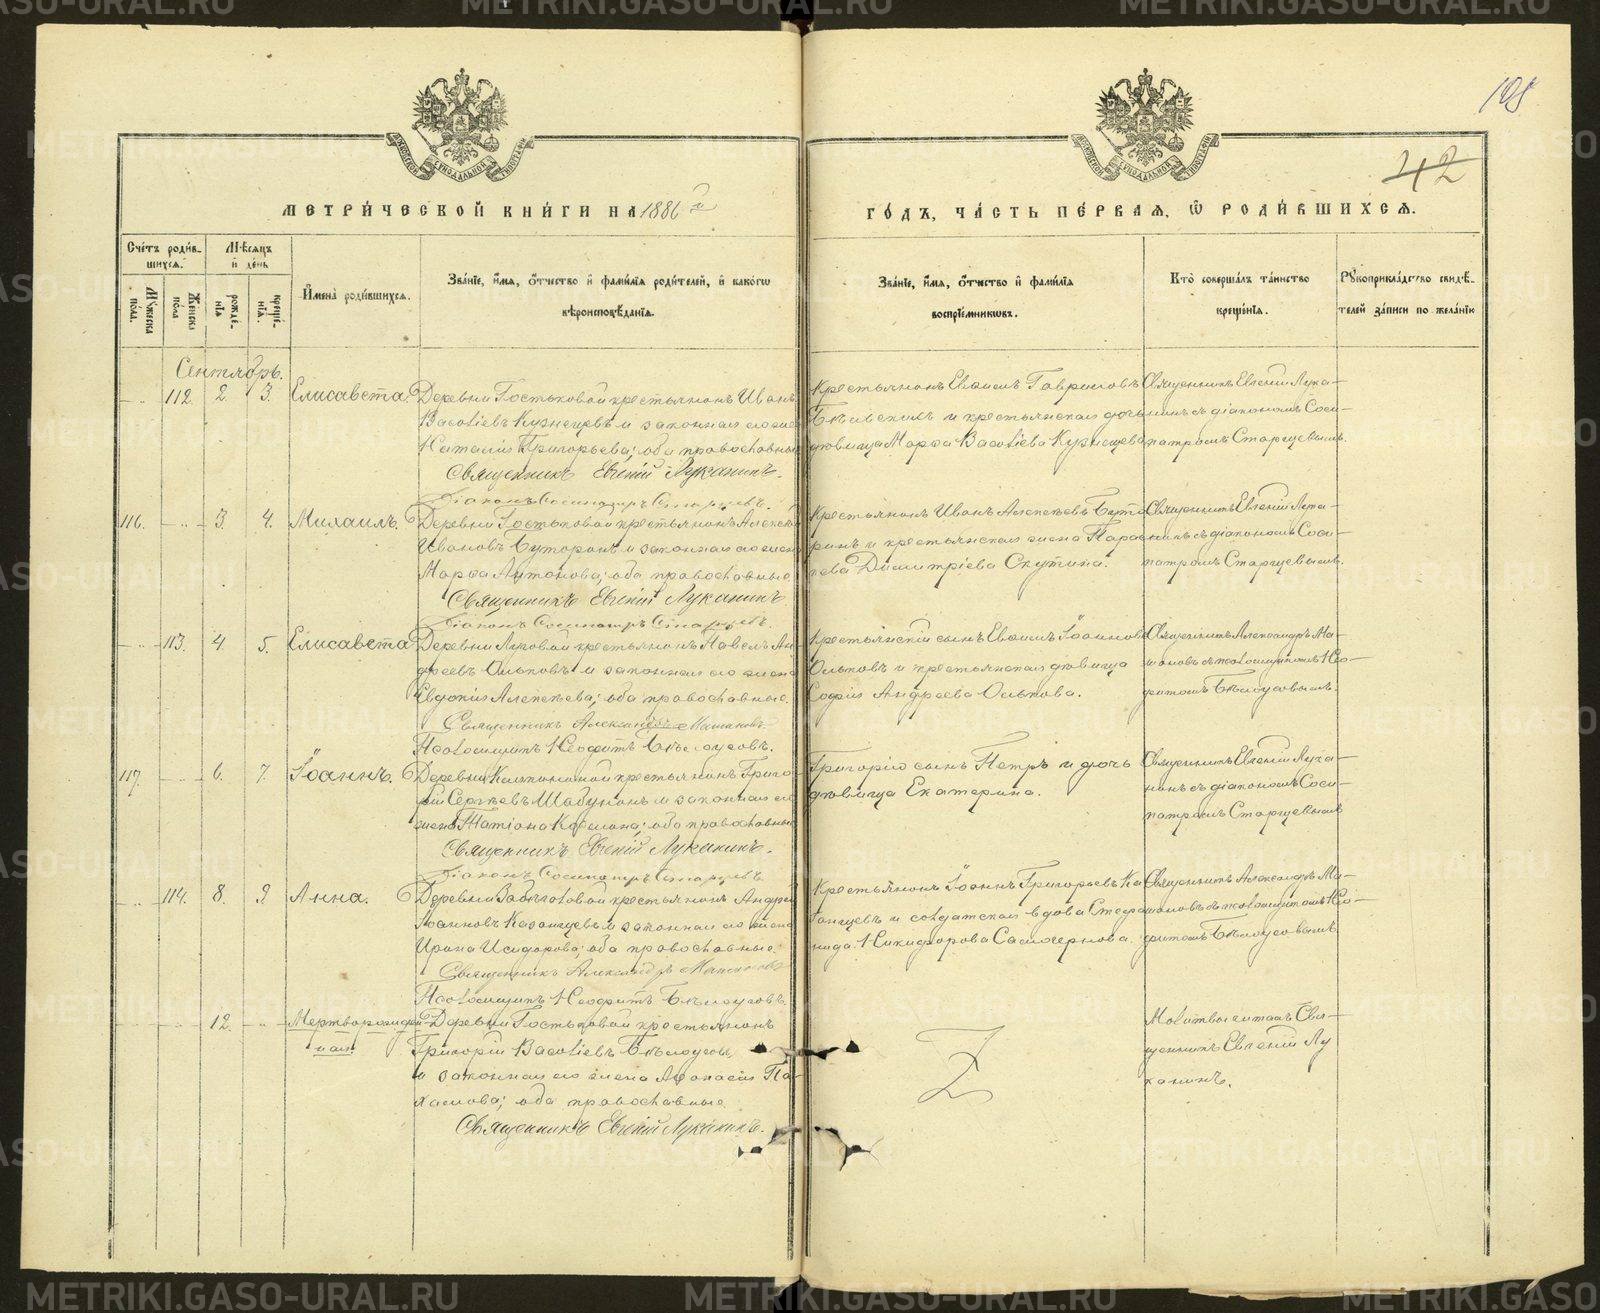 108
42
МОСКОВСКОЙ СѴНОДАЛЬНОЙ ТИПОГРАФІИ
МОСКОВСКОЙ СѴНОДАЛЬНОЙ ТИПОГРАФІИ
МЕТРИ́ЧЕСКОЙ КНИ́ГИ НА 1886 й
ГО́ДЪ, ЧА́СТЬ ПЕ́РВАЯ, Ѽ РОДИ́ВШИХСЯ.
Сче́тъ роди́в-
шихся.
Мѣ́сяцъ
и҆ де́нь
Мꙋ́жеска по́ла.
Же́нска пола
рожде́-
нїя
креще́-
нїя.
И҆мена̀ роди́вшихся.
Зва́нїе, и҆́мя, ѻ҆́тчество и҆ фами́лїя роди́телей, и҆ како́гѡ
вѣроисповѣ́данїя.
Зва́нїе, и҆́мя, ѻ҆́тчество и҆ фами́лїя
воспрїе́мникѡвъ.
Кто̀ соверша́лъ та́инство
креще́нїя.
Рꙋкоприкла́дство свидѣ́-
телей за́писи по жела́нїю
Сентябрь.
112. 2. 3. Елисавета.
Деревни Гостьковой крестьянинъ Иванъ
Василіевъ Кузнецевъ и законная его жена
Наталія Григорьева; оба православные
Священникъ Евгеній Луканинъ.
Діаконъ Сосипатръ Старцевъ.
Крестьянинъ Гавриловъ
и крестьянская дочь
дѣвица Марѳа Василіева Кузнецева
Священникъ Евгеній Лука-
нинъ съ діакономъ Соси-
патромъ Старцевымъ.
116. 3. 4. Михаилъ.
Деревни Гостьковой крестьянинъ Алексѣй
Ивановъ Буторинъ и законная его жена
Марѳа Антонова; оба православные
Священникъ Евгеній Луканинъ
Діаконъ Сосипатръ Старцевъ.
Крестьянинъ Иванъ Алексѣевъ Буто-
ринъ и крестьянская жена Параске-
ва Димитріева Скутина.
Священникъ Евгеній Лука-
нинъ съ діакономъ Соси-
патромъ Старцевымъ.
113. 4. 5. Елисавета
Деревни Луговой крестьянинъ Павелъ Ан-
дреевъ Ольковъ и законная его жена
Евдокія Алексѣева; оба православные.
Священникъ Александръ
Псаломщикъ Неофитъ Бѣлоусовъ.
Крестьянскій сынъ Іоанновъ
Ольковъ и крестьянская дѣвица
Софія Андреева Олькова.
Священникъ Александръ Ма-
съ псаломщикомъ Нео-
фитомъ Бѣлоусовымъ.
117. 6. 7. Іоаннъ.
Деревни крестьянинъ Григо-
рій Сергѣевъ Шабунинъ и законная его
жена Татіана; оба православные
Священникъ Евгеній Луканинъ.
Діаконъ Сосипатръ Старцевъ
Григорію сынъ Петръ и дочь
дѣвица Екатерина.
Священникъ Евгеній Лука-
нинъ съ діакономъ Соси-
патромъ Старцевымъ
114. 8. 9 Анна.
Деревни крестьянинъ Андрей
Іоанновъ Казанцевъ и законная его жена
Ирина Исидорова; оба православные.
Священникъ Александръ
Псаломщикъ Неофитъ Бѣлоусовъ.
Крестьянинъ Іоаннъ Григорьевъ Ка-
занцевъ и солдатская вдова Стефа-
нида Никифорова Самочернова.
Священникъ Александръ Ма-
съ псаломщикомъ Нео-
фитомъ Бѣлоусовымъ
12. Мертворожден-
ная
Деревни Гостьковой крестьянинъ
Григорій Василіевъ Бѣлоусовъ
и законная его жена Аѳанасія Па-
хомова; оба православные.
Священникъ Евгеній Луканинъ.
Молитвы читалъ Свя-
щенникъ Евгеній Лу-
канинъ.
METRIKI.GASO-URAL.RU